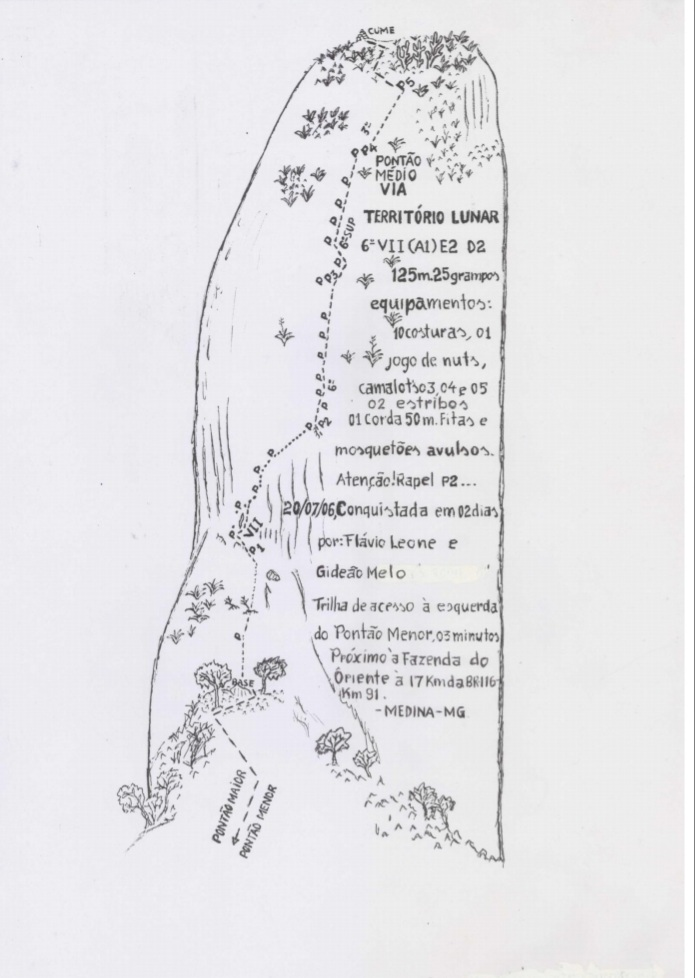 CUME
P5
3º
P P4
PONTÃO
MÉDIO
VIA
P
P
P
TERRITÓRIO LUNAR
P
6º SUP
6º VII (A1) E2 D2
P
P P3
125m. 25 grampos
equipamentos:
P
P
10 costuras, 01
P
jogo de nuts,
P
P 6º
camalots 03, 04 e 05
P
02 estribos
P P2
01 Corda 50m. Fitas e
P
mosquetões avulsos.
P
Atenção! Rapel P2...
P
P
20/07/06, Conquistada em 02 dias
VII
P
P1
por: Flávio Leone e
Gideão Melo
Trilha de acesso à esquerda
P
do Pontão Menor, 03 minutos
Próximo à Fazenda do
Oriente à 17 Km da BR116
Km 91.
BASE
-MEDINA-MG
PONTÃO MAIOR
PONTÃO MENOR